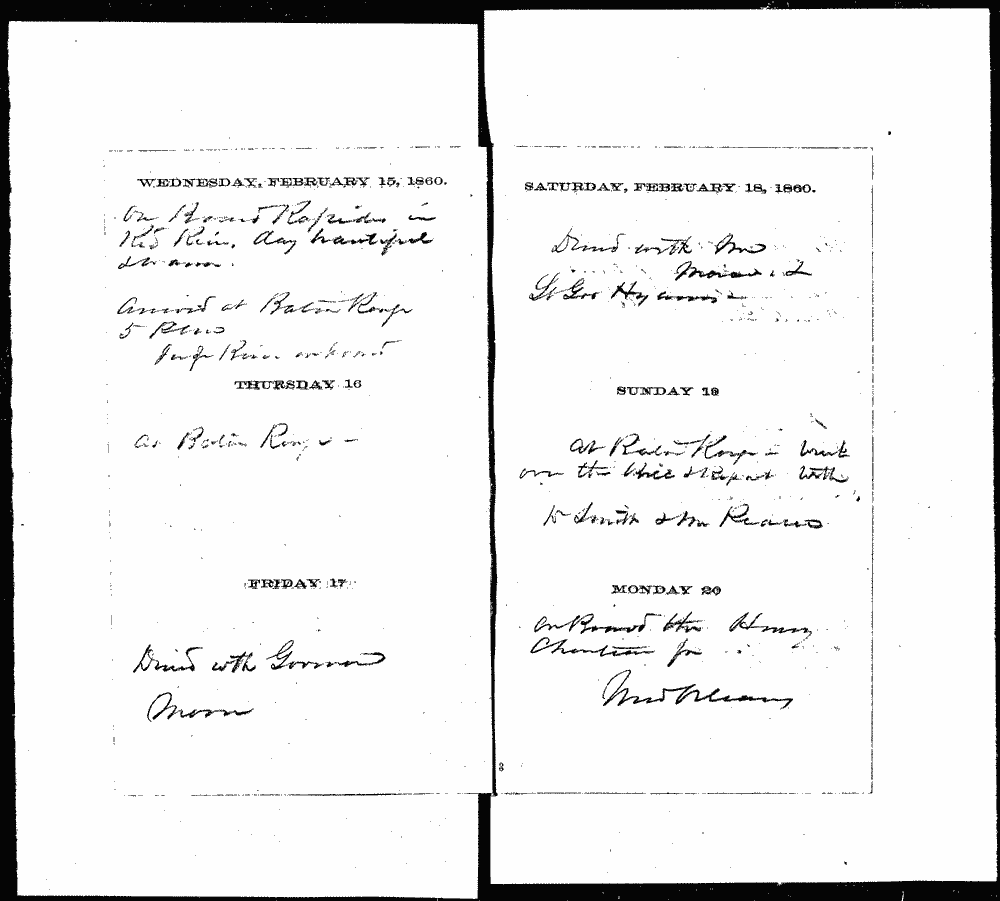 WEDNESDAY, FEBRUARY 15, 1860.
On Board Rapides in
Red River. day beautiful
Arrived at Baton Rouge
5 P
on board
THURSDAY 16
At Baton Rouge -
FRIDAY 17
Dined with Governor
Moore
SATURDAY, FEBRUARY 18, 1860.
Dined with Mr
&
Lt Gov Hyams -
SUNDAY 19
At Baton Rouge - went
over the & Report with
Dr Smith & Mr
MONDAY 20
On Board the Henry
for
New Orleans
8